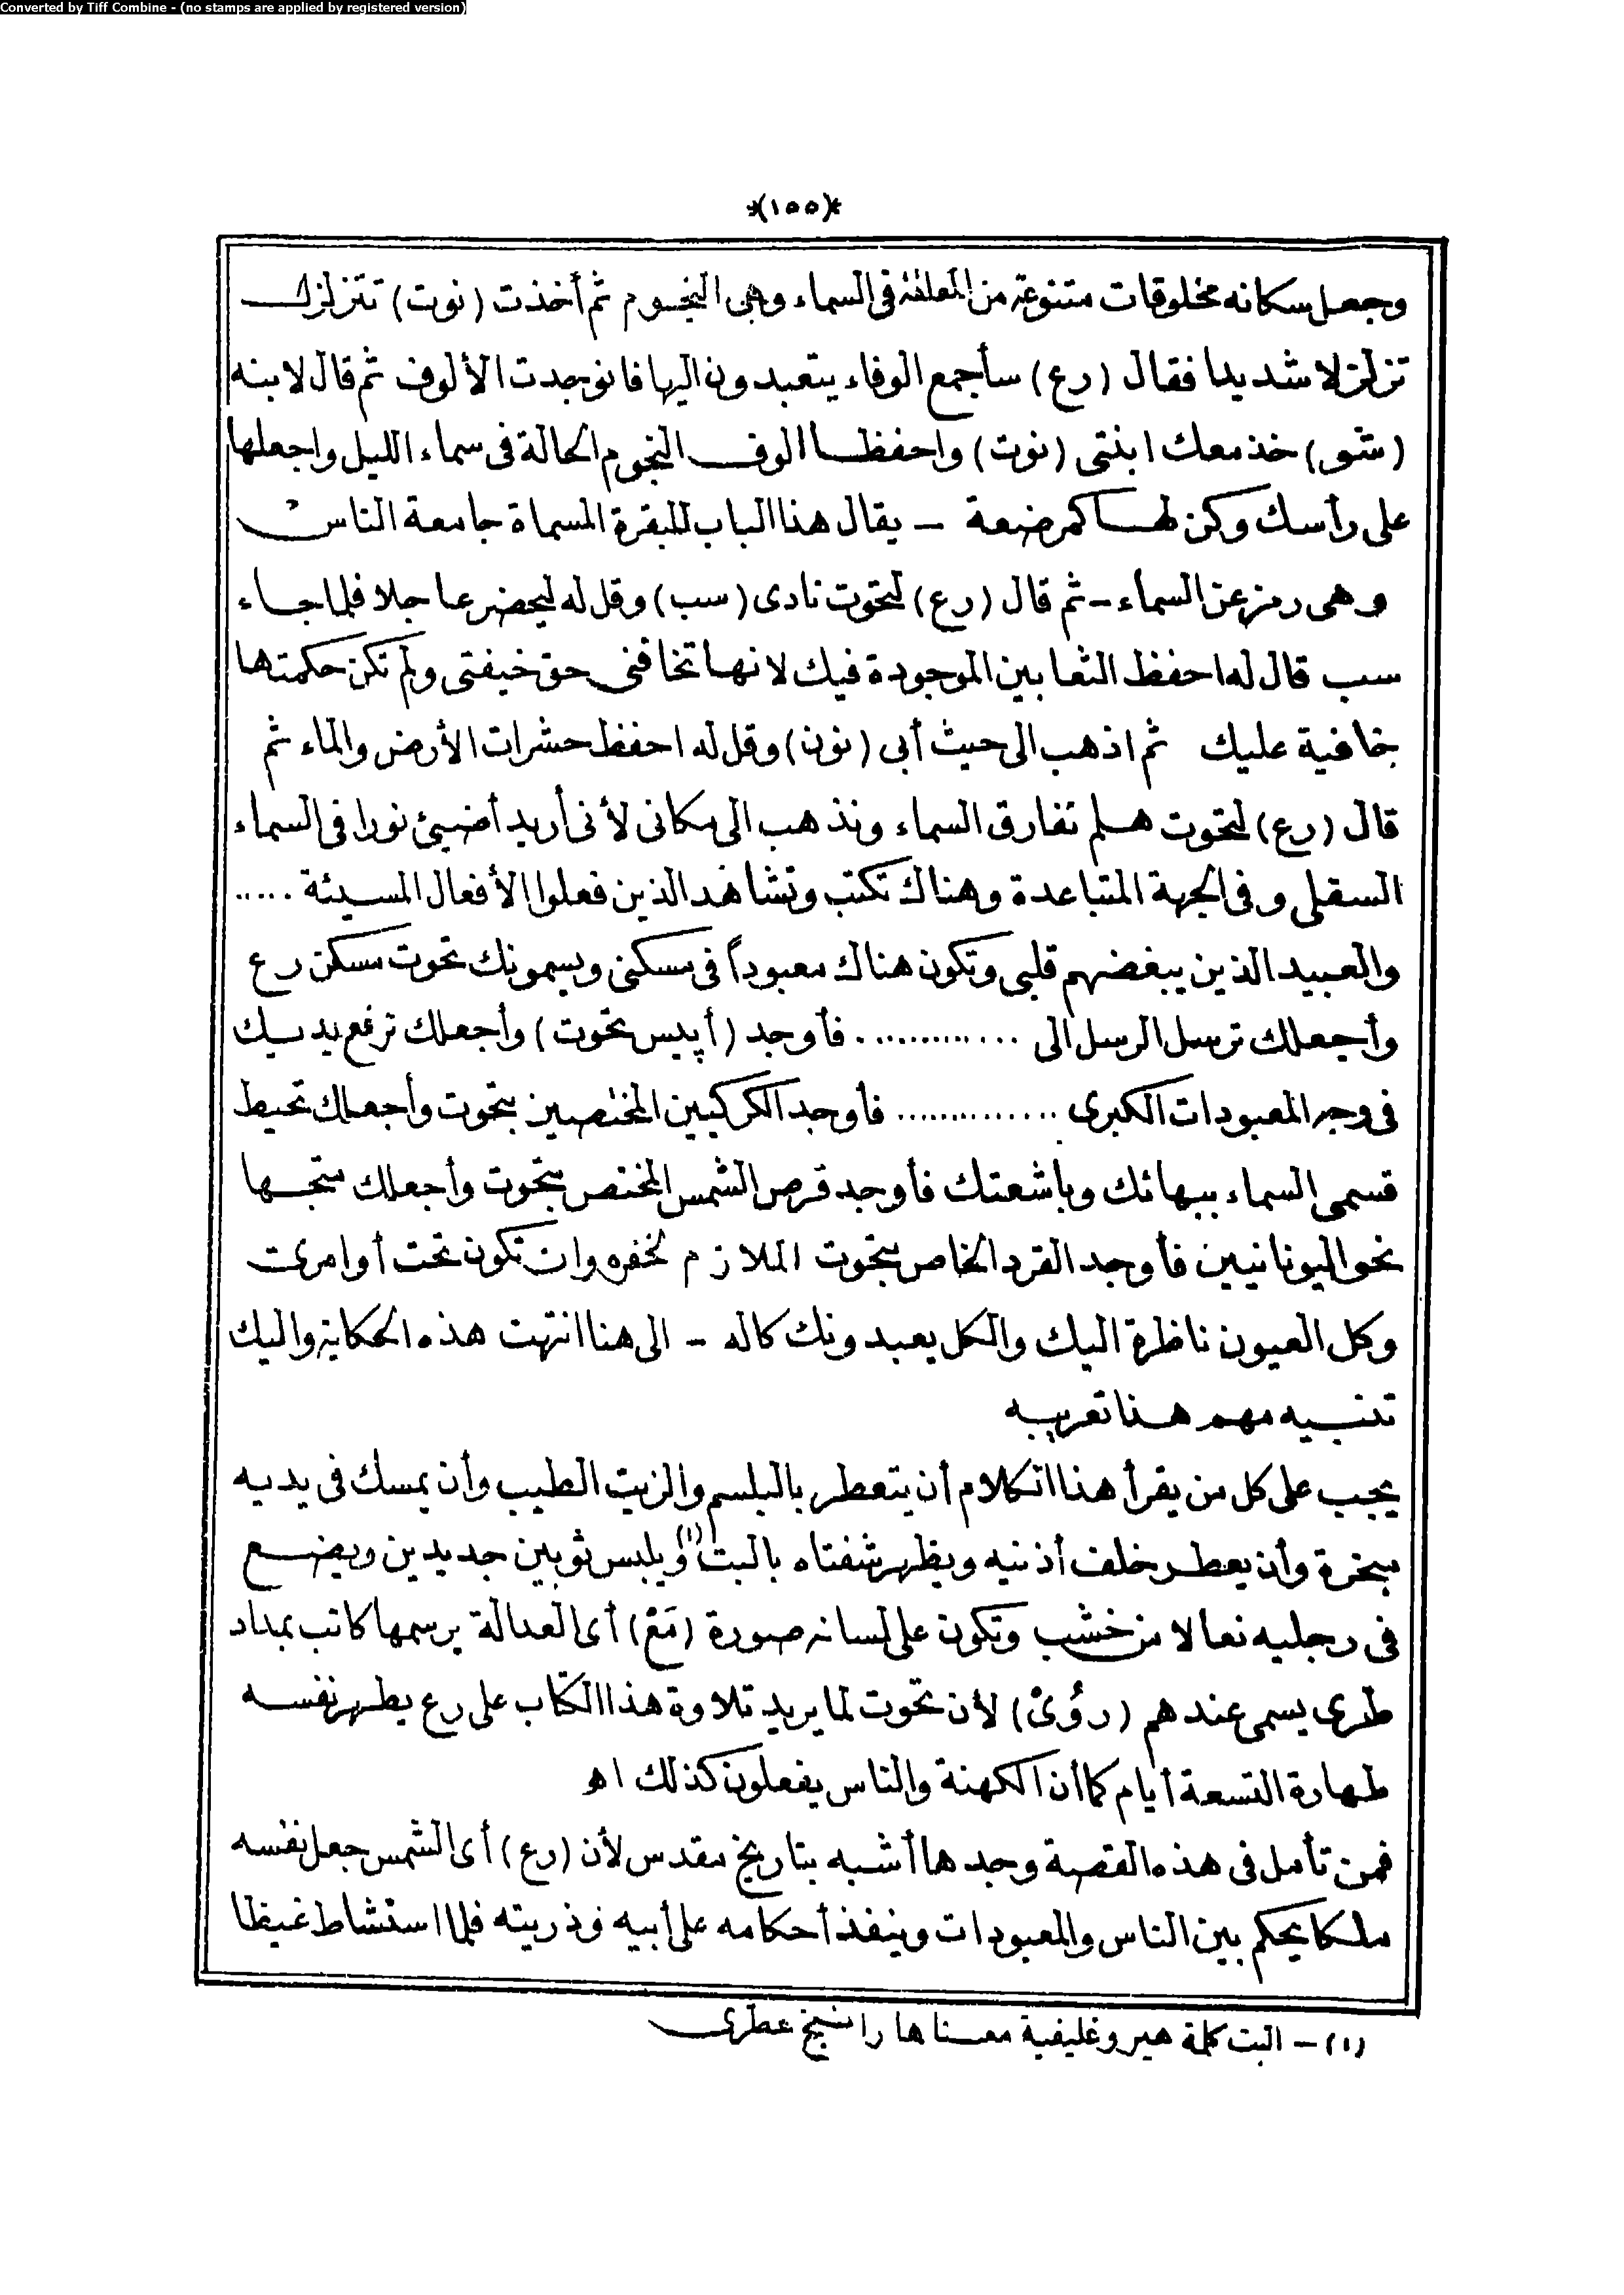 Converted by Tiff Combine - (no stamps are applied by registered version)
*(١٥٥)*
وجعل سكانه مخلوقات متنوعة من المعلقة فى السماء وهى النجوم ثم أخذت (نوت) تتزلزل
تزلزلا شديدا فقال (رع) سأجمع الوفاء يتعبدون اليها فانوجدت الألوف ثم قال لابنه
(شو) خذ معك ابنتى (نوت) واحفظا الوف النجوم الحالة فى سماء الليل واجعلها
على رأسك وكن لها كمرضعة – يقال هذا الباب للبقرة المسماة جامعة الناس
وهى رمز عن السماء – ثم قال (رع) لتحوت نادى (سب) وقل له ليحضر عاجلا فلما جاء
سب قال له احفظ الثعابين الموجودة فيك لانها تخافنى حق خيفتى ولم تكن حكمتها
خافية عليك ثم اذهب الى حيث أبى (نون) وقل له احفظ حشرات الأرض والماء ثم
قال (رع) لتحوت هلم نفارق السماء ونذهب الى مكانى لأنى أريد أضيئ نورا فى السماء
السفلى وفى الجهة المتباعدة وهناك تكتب وتشاهد الذين فعلوا الأفعال المسيئة .....
والعبيد الذين يبغضهم قلبى وتكون هناك معبوداً فى مسكنى ويسمونك تحوت مسكن رع
وأجعلك ترسل الرسل الى .............. فأوجد (أپيس تحوت) وأجعلك ترفع يديك
فى وجه المعبودات الكبرى .............. فأوجد الكركيين المختصين بتحوت وأجعلك تحيط
قسمى السماء ببهائك وباشعتك فأوجد قرص الشمس المختص بتحوت وأجعلك متجها
نحو اليونانيين فأوجد القرد الخاص بتحوت الملازم لخفره وان تكون تحت أوامرى
وكل العيون ناظرة اليك والكل يعبدونك كاله – الى هنا انتهت هذه الحكاية واليك
تنبيه مهم هنا تعريبه
يجب على كل من يقرأ هذا الكلام أن يتعطر بالبلسم والزيت الطيب وأن يمسك فى يديه
مبخرة وأن يعطر خلف أذنيه ويطهر شفتاه بالبت (١) ويلبس ثوبين جديدين ويضع
فى رجليه نعالا من خشب وتكون على لسانه صورة (مَعْ) أى العدالة يرسمها كاتب بمداد
طرى يسمى عندهم (رؤىْ) لأن تحوت لما يريد تلاوة هذا الكتاب على رع يطهر نفسه
طهارة التسعة أيام كما أن الكهنة والناس يفعلون كذلك اه
فمن تأمل فى هذه القصة وجدها أشبه بتاريخ مقدس لأن (رع) أى الشمس جعل نفسه
ملكا يحكم بين الناس والمعبودات وينفذ أحكامه على أبيه وذريته فلما استشاط غيظا
(١) – البت كلمة هيروغليفية معناها راتنيج عطرى